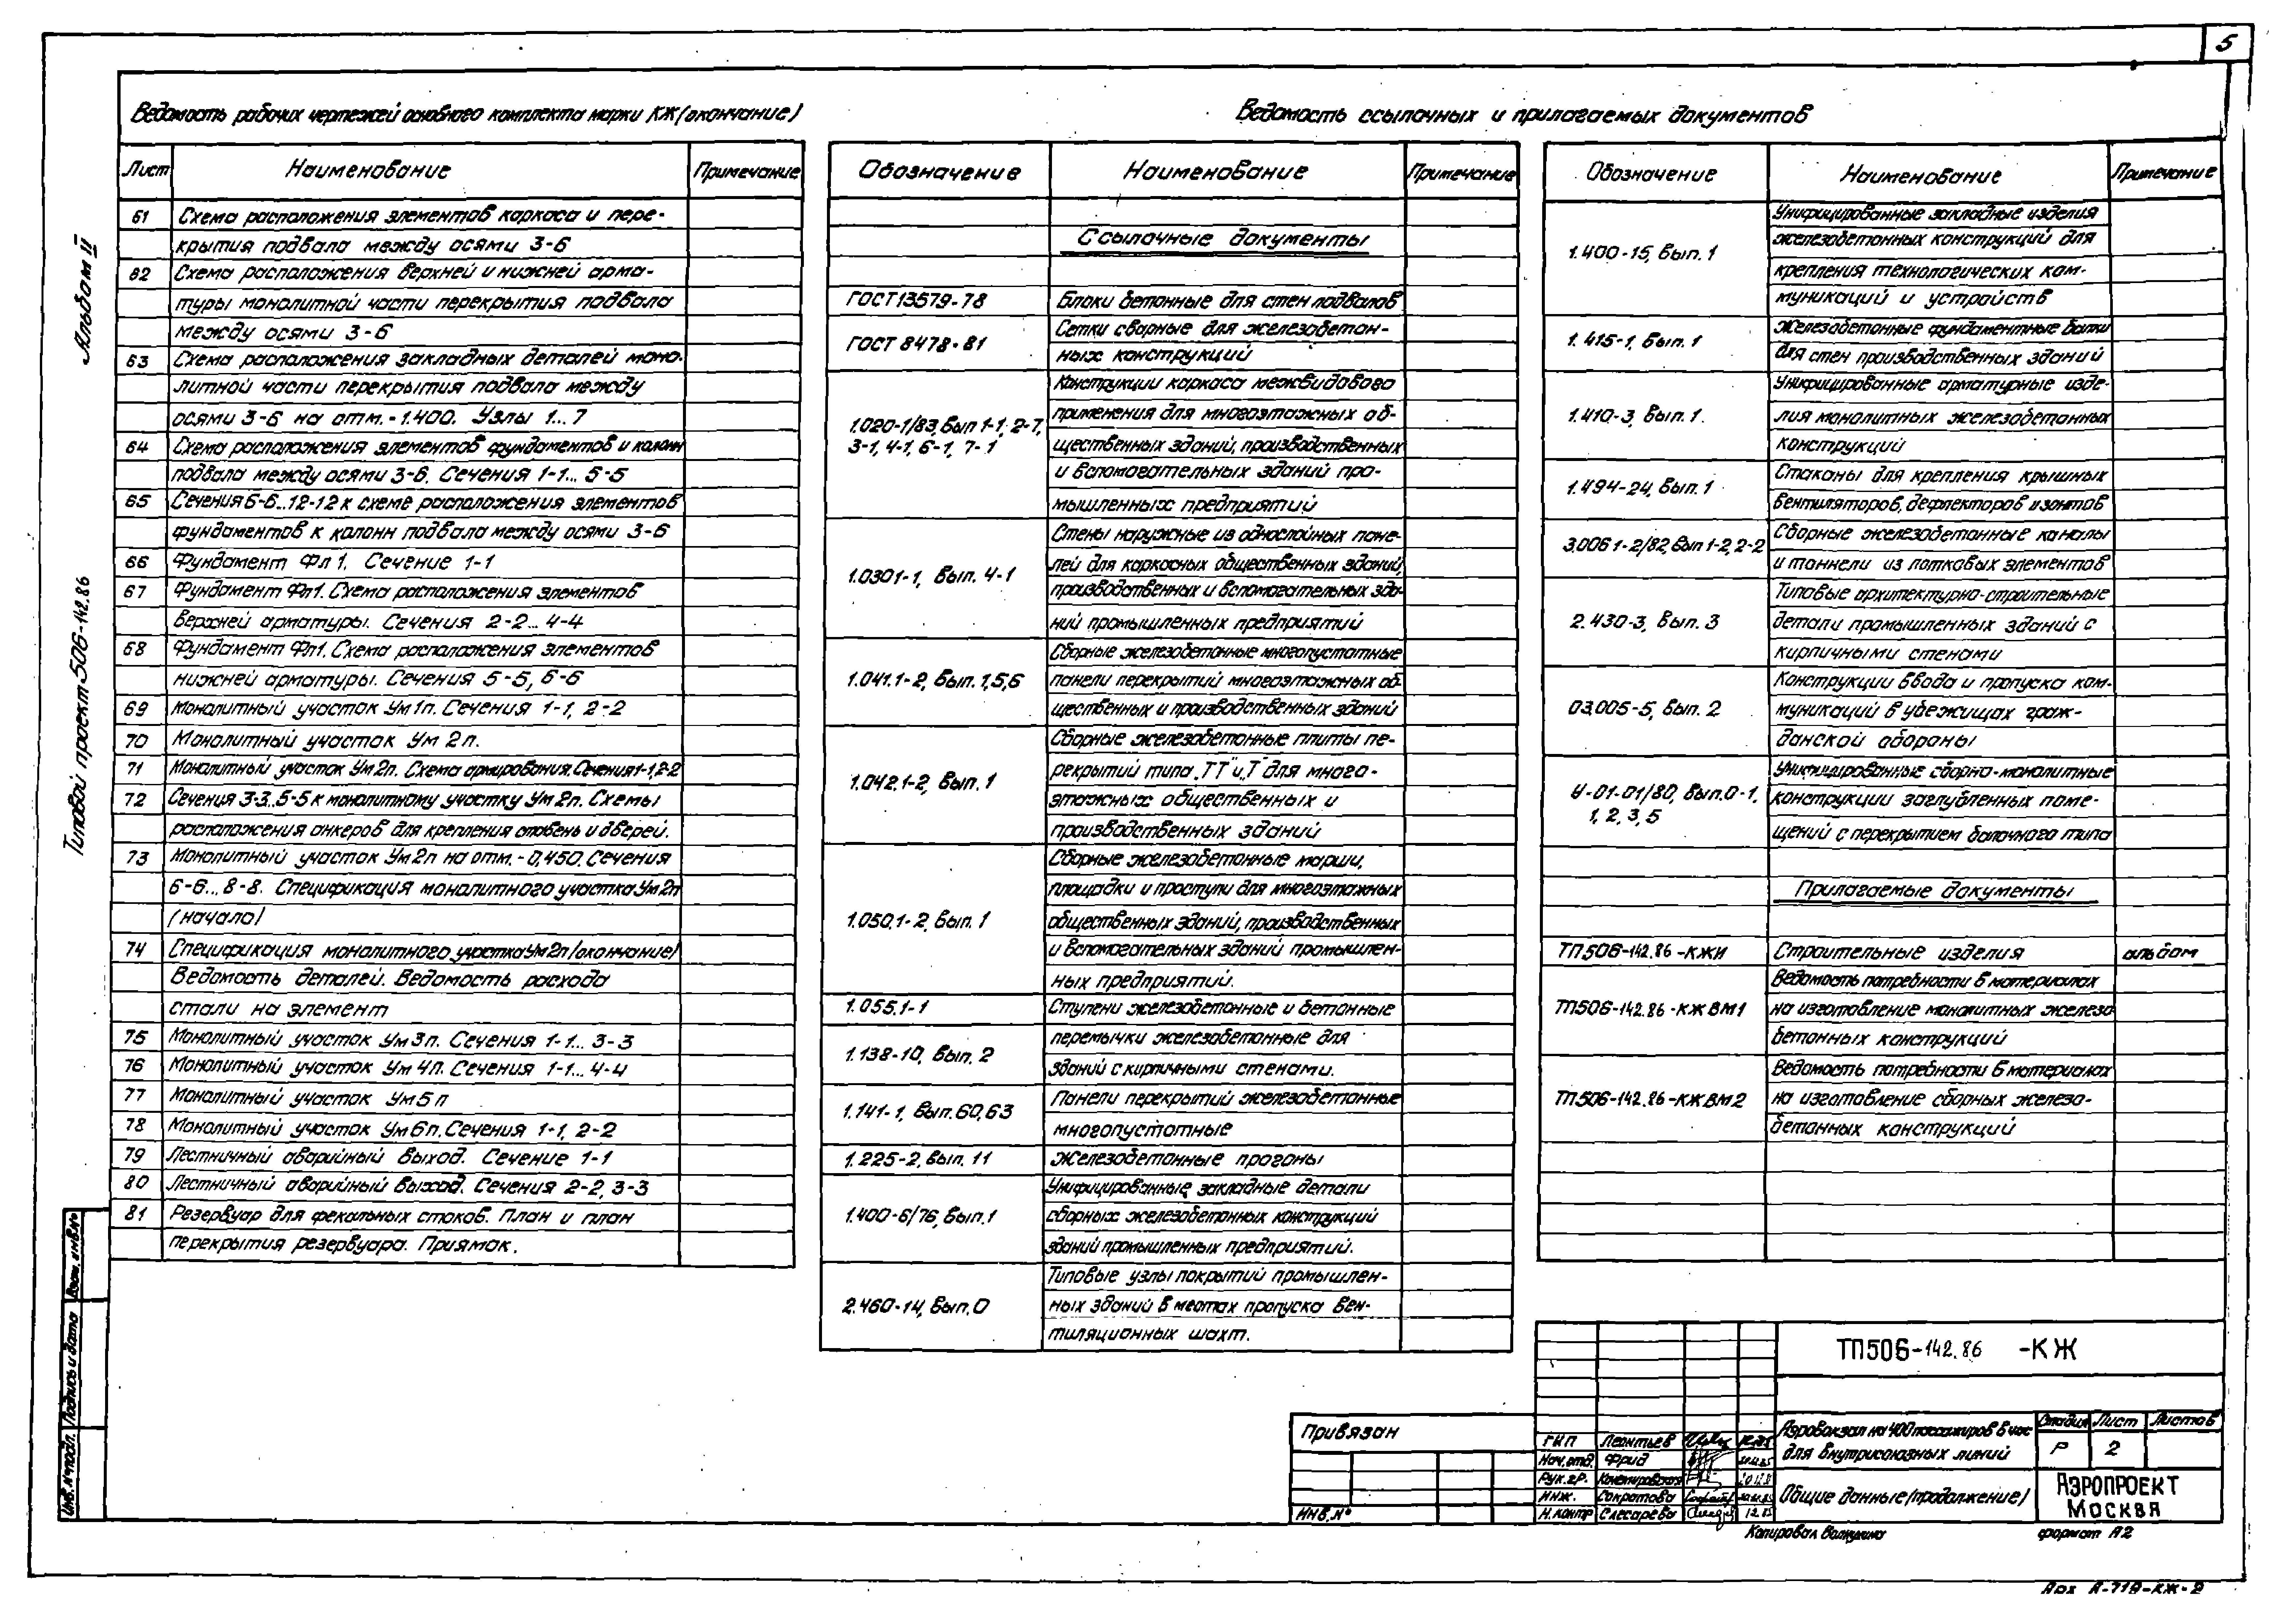 5
Ведомость рабочих чертежей основного комплекта марки КЖ (окончание)
Лист
Наименование
Примечание
61
Схема расположения элементов каркаса и пере-
крытия подвала между осями 3-6
62
Схема расположения верхней и нижней арма-
туры монолитной части перекрытия подвала
между осями 3-6
63
Схема расположения закладных деталей моно-
литной части перекрытия подвала между
осями 3-6 на отм.-1.400. Узлы 1...7
64
Схема расположения элементов фундаментов и колонн
подвала между осями 3-6. Сечения 1-1...5-5
65
Сечения 6-6...12-12 к схеме расположения элементов
фундаментов к колонн подвала между осями 3-6
66
Фундамент Фл1. Сечение 1-1
67
Фундамент Фл1. Схема расположения элементов
верхней арматуры. Сечения 2-2...4-4
68
Фундамент Фл1. Схема расположения элементов
нижней арматуры. Сечения 5-5, 6-6
69
Монолитный участок Ум1п. Сечения 1-1, 2-2
70
Монолитный участок Ум 2п.
71
Монолитный участок Ум2п. Схема армирования. Сечения 1-1, 2-2
72
Сечения 3-3..5-5 к монолитному участку Ум2п. Схемы
расположения анкеров для крепления ставень и дверей.
73
Монолитный участок Ум2п на отм.-0,450. Сечения
6-6...8-8. Спецификация монолитного участка Ум2п
(начало)
74
Спецификация монолитного участка Ум2п (окончание)
Ведомость деталей. Ведомость расхода
стали на элемент
75
Монолитный участок Ум3п. Сечения 1-1...3-3
76
Монолитный участок Ум4п. Сечения 1-1...4-4
77
Монолитный участок Ум5п
78
Монолитный участок Ум6п. Сечения 1-1, 2-2
79
Лестничный аварийный выход. Сечение 1-1
80
Лестничный аварийный выход. Сечения 2-2, 3-3
81
Резервуар для фекальных стоков. План и план
перекрытия резервуара. Приямок.
Ведомость ссылочных и прилагаемых документов
Обозначение
Наименование
Примечание
Ссылочные документы
ГОСТ 13579-78
Блоки бетонные для стен подвалов
ГОСТ 8478-81
Сетки сварные для железобетон-
ных конструкций
1.020-1/83, Вып 1-1, 2-7,
3-1, 4-1, 6-1, 7-1
Конструкции каркаса межвидового
применения для многоэтажных об-
щественных зданий, производственных
и вспомогательных зданий про-
мышленных предприятий
1.030.1-1, Вып. 4-1
Стены наружные из однослойных пане-
лей для каркасных общественных зданий,
производственных и вспомогательных зда-
ний промышленных предприятий
1.041.1-2, Вып. 1,5,6
Сборные железобетонные многопустотные
панели перекрытий многоэтажных об-
щественных и производственных зданий
1.042.1-2, Вып. 1
Сборные железобетонные плиты пе-
рекрытий типа „ТТ" и „Т" для много-
этажных общественных и
производственных зданий
1.050.1-2, Вып. 1
Сборные железобетонные марши,
площадки и проступи для многоэтажных
общественных зданий, производственных
и вспомогательных зданий промышлен-
ных предприятий.
1.055.1-1
Ступени железобетонные и бетонные
1.138-10, Вып. 2
перемычки железобетонные для
зданий с кирпичными стенами.
1.141-1, Вып. 60,63
Панели перекрытий железобетонные
многопустотные
1.225-2, Вып. 11
Железобетонные прогоны
1.400-6/76, Вып.1
Унифицированные закладные детали
сборных железобетонных конструкций
зданий промышленных предприятий.
2.460-14, Вып.0
Типовые узлы покрытий промышлен-
ных зданий в местах пропуска вен-
тиляционных шахт.
Обозначение
Наименование
Примечание
1.400-15, Вып. 1
Унифицированные закладные изделия
железобетонных конструкций для
крепления технологических ком-
муникаций и устройств
1.415-1, Вып. 1
Железобетонные фундаментные балки
для стен производственных зданий
1.410-3, Вып. 1.
Унифицированные арматурные изде-
лия монолитных железобетонных
конструкций
1.494-24, Вып. 1
Стаканы для крепления крышных
вентиляторов, дефлекторов и зонтов
3.006.1-2/82, Вып 1-2, 2-2
Сборные железобетонные каналы
и тоннели из лотковых элементов
2.430-3, Вып. 3
Типовые архитектурно-строительные
детали промышленных зданий с
кирпичными стенами
03.005-5, Вып. 2
Конструкции ввода и пропуска ком-
муникаций в убежищах граж-
данской обороны
У-01-01/80, Вып.0-1,
1, 2, 3, 5
Унифицированные сборно-монолитные
конструкции заглубленных поме-
щений с перекрытием балочного типа
Прилагаемые документы
ТП506-142.86-КЖИ
Строительные изделия
альбом
ТП506-142.86-КЖ ВМ1
Ведомость потребности в материалах
на изготовление монолитных железо
бетонных конструкций
ТП506-142.86-КЖ ВМ2
Ведомость потребности в материалах
на изготовление сборных железо-
бетонных конструкций
Альбом II
Типовой проект 506-142.86
Взам. инв.№
Подпись и дата
Инв.№ подл.
Привязан
Инв.№
ТП506-142.86 -КЖ
ГИП
Леонтьев
Нач.отд.
Фрид
Рук.гр.
Инж.
Сократова
Н.контр
Слесарева
12.85
Аэровокзал на 400 пассажиров в час
для внутрисоюзных линий
Стадия
Лист
Листов
Р
2
Общие данные (продолжение)
Аэропроект
Москва
Копировал
формат А2
Арх А-719-КЖ-2